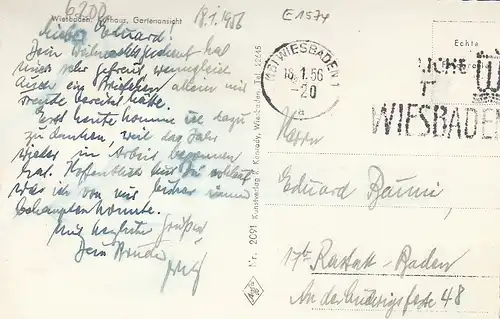 6200
Wiesbaden. Kurhaus, Gartenansicht
18.1.1956
E 1574
Lieber Eduard!
Dein Weihnachtspaket hat
mich sehr gefreut, wenngleich
auch ein Briefchen allein mir
Freude bereitet hätte.
Erst heute komme ich dazu
zu danken, weil das Jahr
wieder in Arbeit begonnen
hat. Hoffentlich hast Du
was ich von mir bisher
behaupten konnte.
Mit herzlichen Grüßen
Dein Bruder
Nr. 2091 Kunstverlag R. Kennedy, Wiesbaden, Tel. 22645
WIESBADEN 1
18.1.56
-20
a
Echte
WIESBADEN
Herrn
Eduard
17b Rastatt-Baden
An der Ludwigsfeste 48